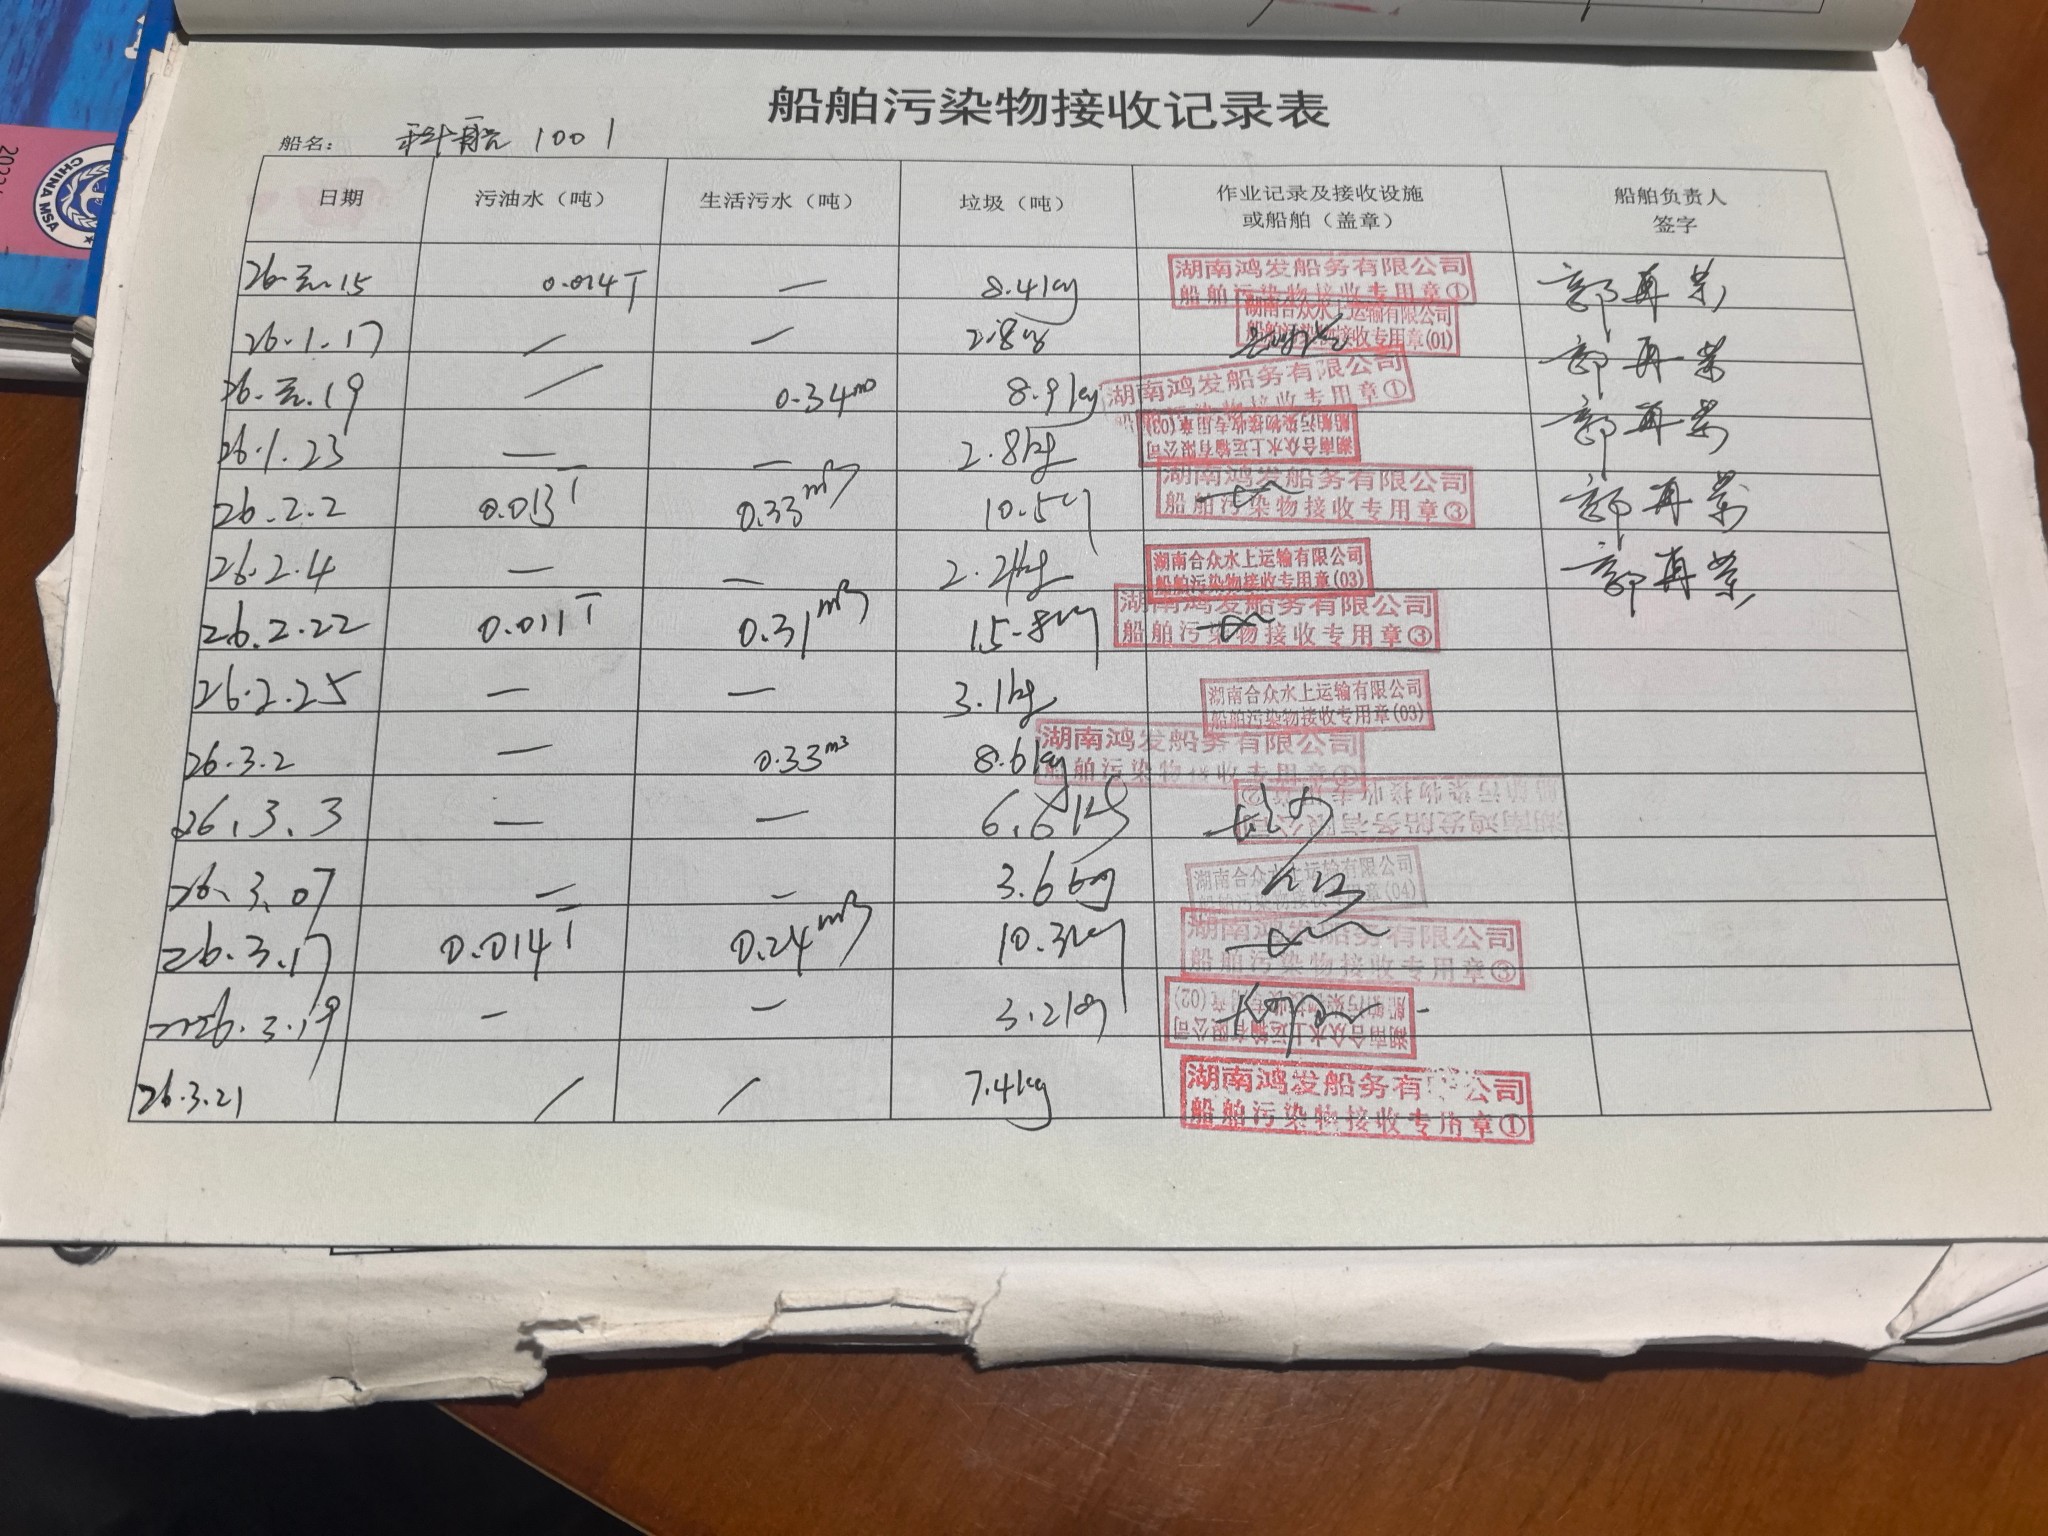 船舶污染物接收记录表
船名： 科航 1001
日期 污油水（吨） 生活污水（吨） 垃圾（吨） 作业记录及接收设施 或船舶（盖章） 船舶负责人 签字
26.元.15 0.014T — 8.4kg 湖南鸿发船务有限公司 船舶污染物接收专用章① 郭再荣
26.1.17 — — 2.8kg 湖南合众水上运输有限公司 船舶污染物接收专用章(01) 郭再荣
26.元.19 / 0.34m³ 8.9kg 湖南鸿发船务有限公司 船舶污染物接收专用章① 郭再荣
26.1.23 — — 2.8kg 湖南合众水上运输有限公司 船舶污染物接收专用章(03)
26.2.2 0.013T 0.33m³ 10.5kg 湖南鸿发船务有限公司 船舶污染物接收专用章③ 郭再荣
26.2.4 — — 2.2kg 湖南合众水上运输有限公司 船舶污染物接收专用章(03) 郭再荣
26.2.22 0.011T 0.31m³ 15.8kg 湖南鸿发船务有限公司 船舶污染物接收专用章③
26.2.25 — — 3.1kg 湖南合众水上运输有限公司 船舶污染物接收专用章(03)
26.3.2 — 0.33m³ 8.6kg 湖南鸿发船务有限公司 船舶污染物接收专用章①
26.3.3 — — 6.6kg 湖南鸿发船务有限公司 船舶污染物接收专用章②
26.3.07 — — 3.6kg 湖南合众水上运输有限公司 船舶污染物接收专用章(04)
26.3.17 0.014T 0.24m³ 10.3kg 湖南鸿发船务有限公司 船舶污染物接收专用章③
2026.3.19 — — 3.2kg 湖南合众水上运输有限公司 船舶污染物接收专用章(02)
26.3.21 / / 7.4kg 湖南鸿发船务有限公司 船舶污染物接收专用章①
CHINA MSA